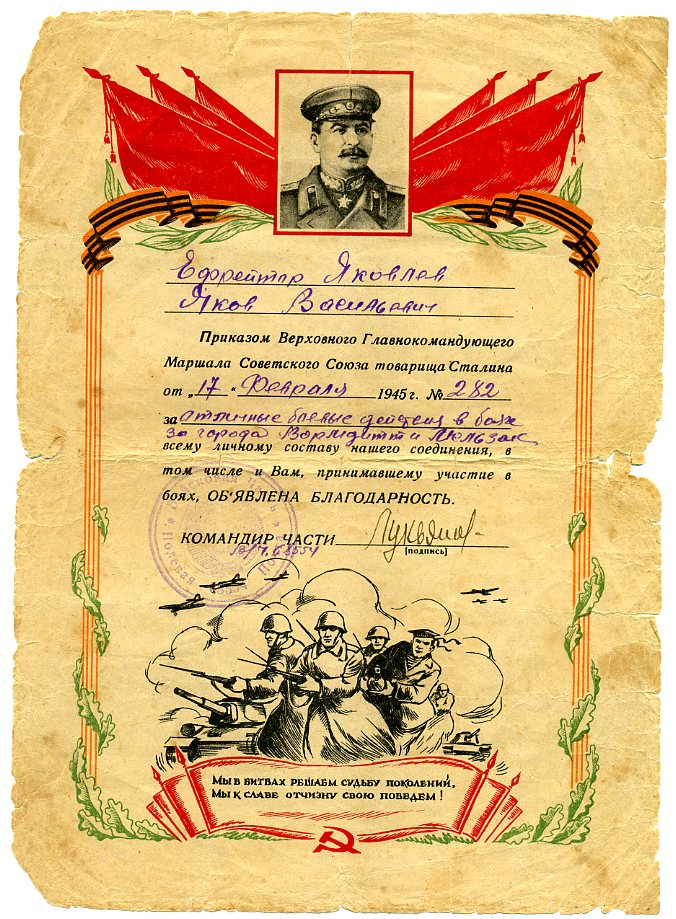 Ефрейтор Яковлев
Яков Васильевич
Приказом Верховного Главнокомандующего
Маршала Советского Союза товарища Сталина
от „17“ Февраля 1945 г. № 282
за отличные боевые действия в боях
за города Вормдитт и Мельзак
всему личному составу нашего соединения, в
том числе и Вам, принимавшему участие в
боях, ОБ'ЯВЛЕНА БЛАГОДАРНОСТЬ.
КОМАНДИР ЧАСТИ
(подпись)
Полевая
МЫ В БИТВАХ РЕШАЕМ СУДЬБУ ПОКОЛЕНИЙ,
МЫ К СЛАВЕ ОТЧИЗНУ СВОЮ ПОВЕДЕМ!